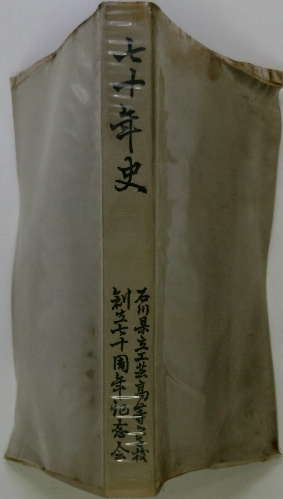 七十年史
石川県立工芸高等学校
創立七十周年記念会